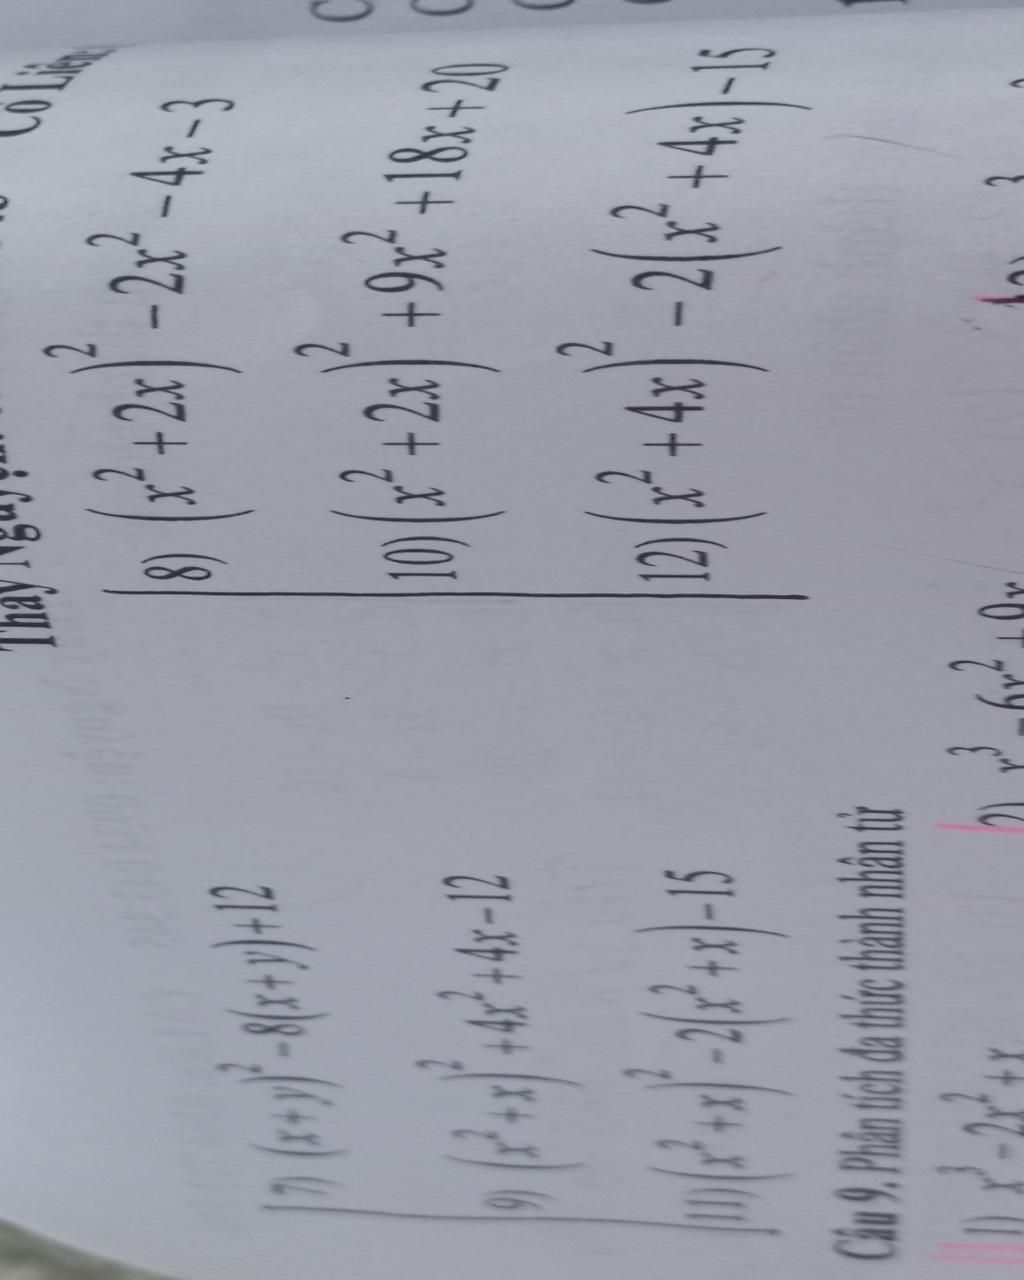 Thầy Cô Liên
7) (x+y)² -8(x+y)+12 8) (x² +2x)² -2x² -4x-3
9) (x² +x)² +4x² +4x-12 10) (x² +2x)² +9x² +18x+20
11) (x² +x)² -2(x² +x)-15 12) (x² +4x)² -2(x² +4x)-15
Câu 9. Phân tích đa thức thành nhân tử
1) x³ -2x² +x 2) x³ -6x² +9x